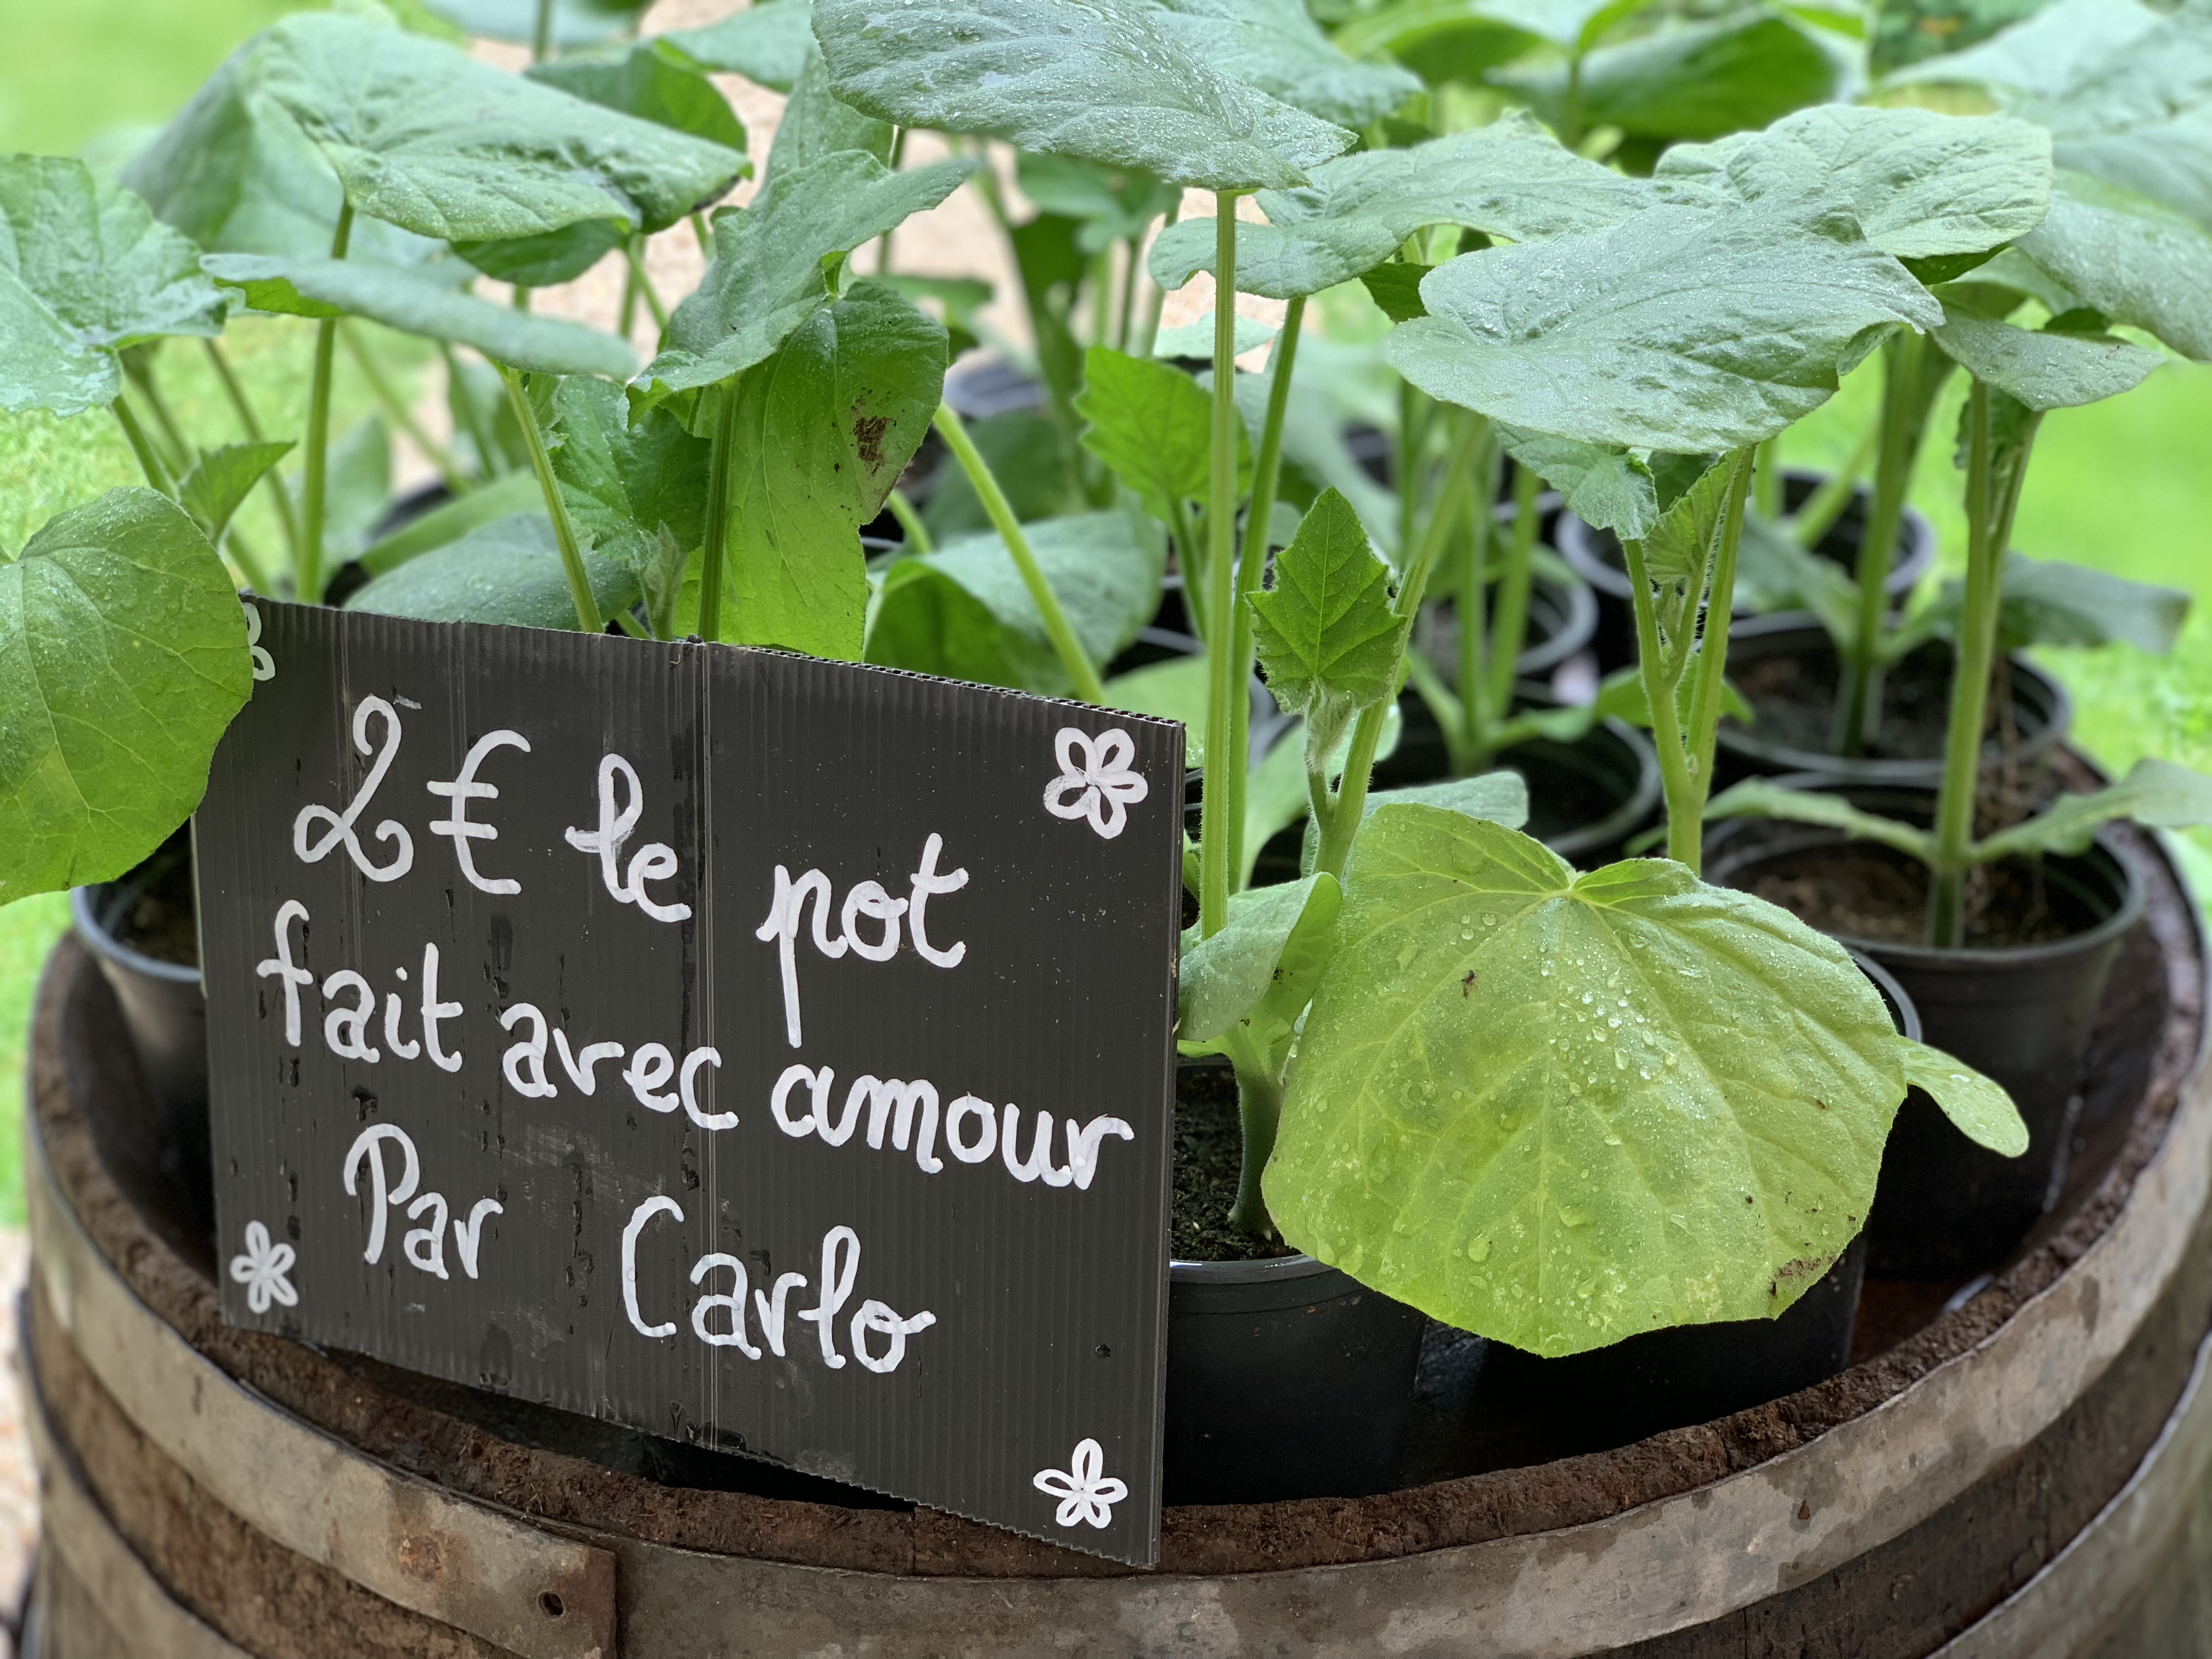 2€ le pot
fait avec amour
Par Carlo